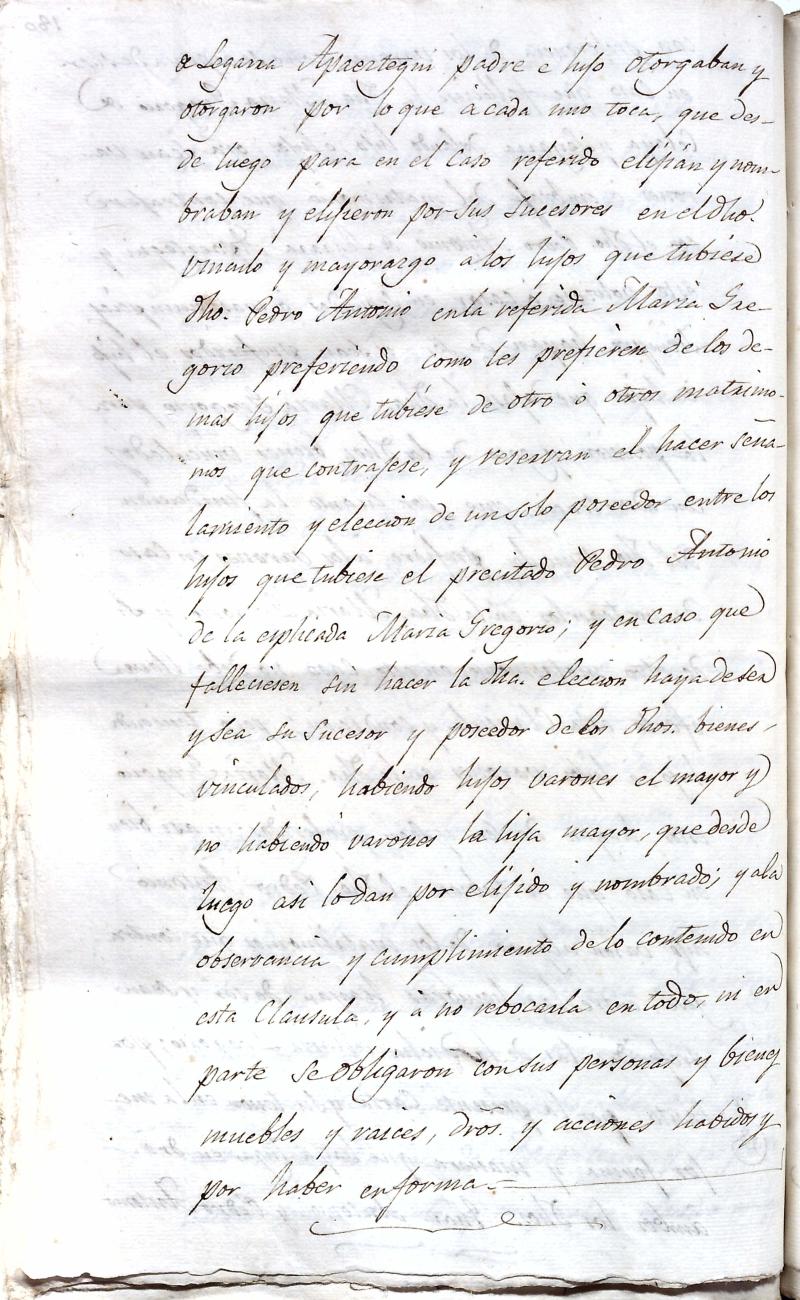 de Legarra Apaeztegui padre è hijo otorgaban y
otorgaron por lo que à cada uno toca, que des-
de luego para en el caso referido elijian y nom-
braban y elijieron por sus sucesores en el dho.
vinculo y mayorazgo à los hijos que tubiese
dho. Pedro Antonio en la referida Maria Gre-
gorio prefiriendo como les prefieren de los de-
mas hijos que tubiese de otro ò otros matrimo-
nios que contrajese, y reservan el hacer seña-
lamiento y eleccion de un solo poseedor entre los
hijos que tubiese el precitado Pedro Antonio
de la esplicada Maria Gregorio; y en caso que
falleciesen sin hacer la dha. eleccion haya de ser
y sea su sucesor y poseedor de los dhos. bienes
vinculados, habiendo hijos varones el mayor y
no habiendo varones la hija mayor, que desde
luego asi lo dan por elijido y nombrado; y a la
observancia y cumplimiento de lo contenido en
esta Clausula, y à no rebocarla en todo, ni en
parte se obligaron con sus personas y bienes
muebles y raices, dros. y acciones habidos y
por haber en forma.=